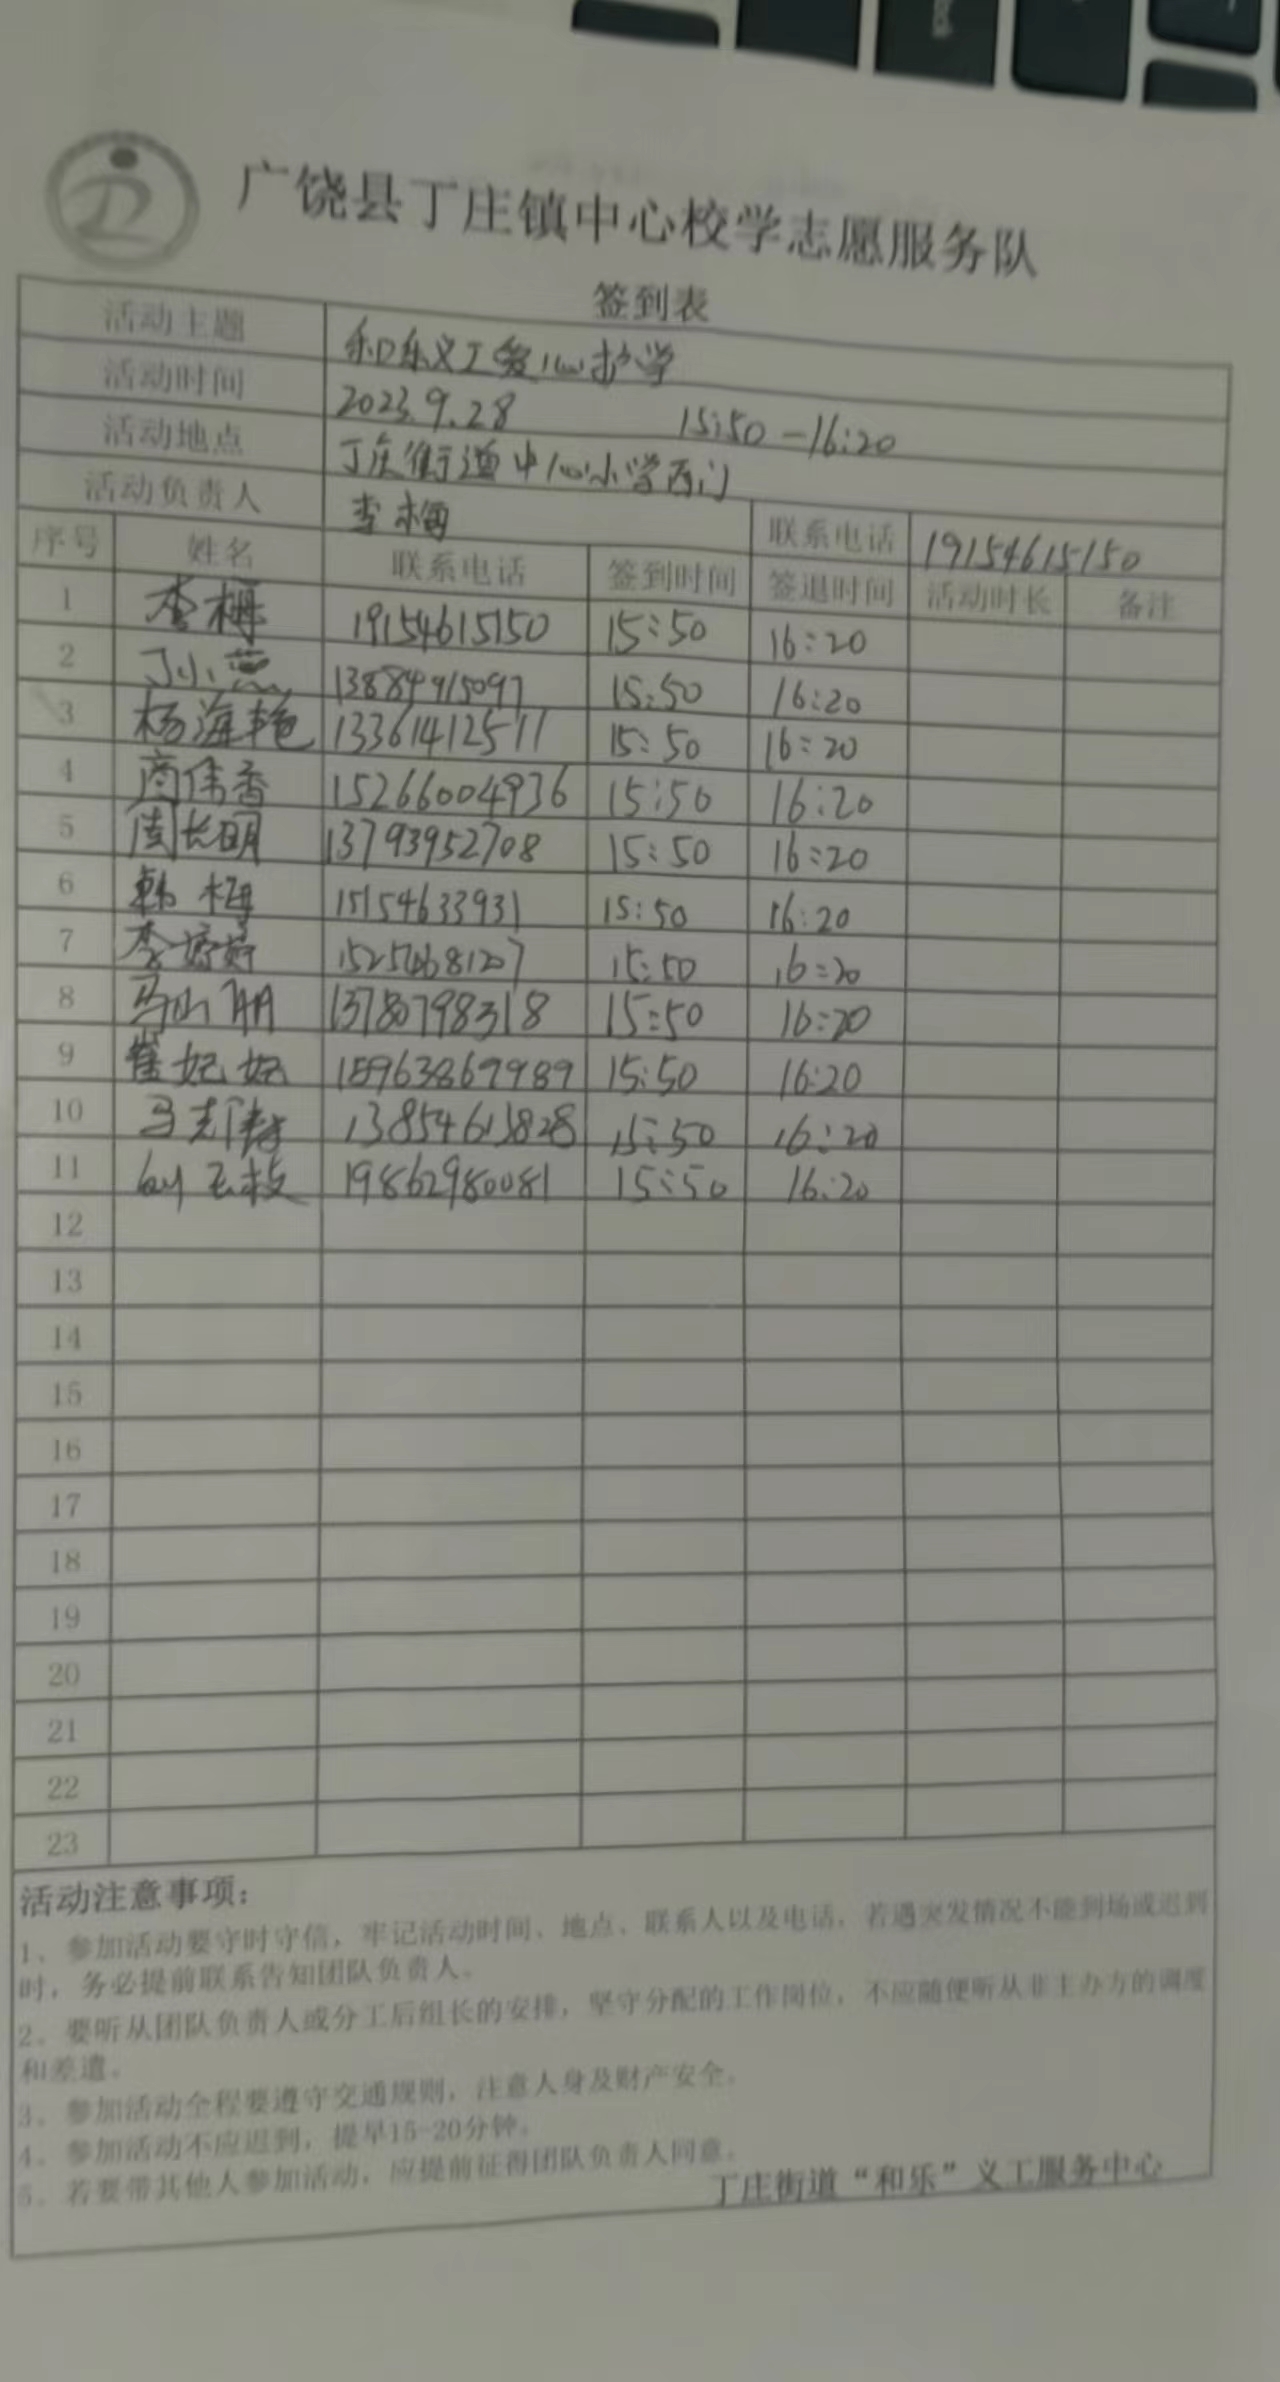 广饶县丁庄镇中心校学志愿服务队
签到表
活动主题 和乐义工爱心护学
活动时间 2023.9.28 15:50-16:20
活动地点 丁庄街道中心小学西门
活动负责人 李梅 联系电话 19154615150
序号 姓名 联系电话 签到时间 签退时间 活动时长 备注
1 李梅 19154615150 15:50 16:20
2 丁小燕 13884915097 15:50 16:20
3 杨海艳 13361412511 15:50 16:20
4 商伟香 15266004936 15:50 16:20
5 周长明 13793952708 15:50 16:20
6 韩梅 15154633931 15:50 16:20
7 李婷婷 15:50 16:20
8 马山朋 13780798318 15:50 16:20
9 崔妃妃 15963869989 15:50 16:20
10 马 13854613828 15:50 16:20
11 刘玉枝 19862980081 15:50 16:20
12
13
14
15
16
17
18
19
20
21
22
23
活动注意事项：
1、参加活动要守时守信，牢记活动时间、地点、联系人以及电话，若遇突发情况不能到场或迟到
时，务必提前联系告知团队负责人。
2、要听从团队负责人或分工后组长的安排，坚守分配的工作岗位，不应随便听从非主办方的调度
和差遣。
3、参加活动全程要遵守交通规则，注意人身及财产安全。
4、参加活动不应迟到，提早15-20分钟。
5、若要带其他人参加活动，应提前征得团队负责人同意。
丁庄街道“和乐”义工服务中心